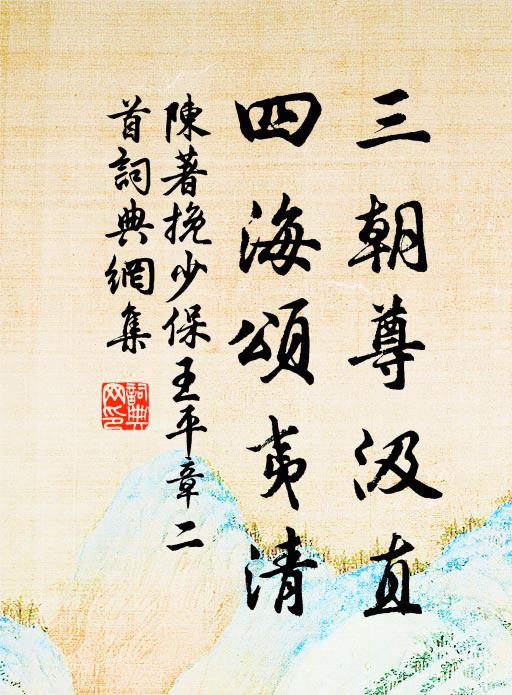 三朝尊汲直
四海頌夷清
陳著挽少保王平章二
首詞典網集
詞典網印